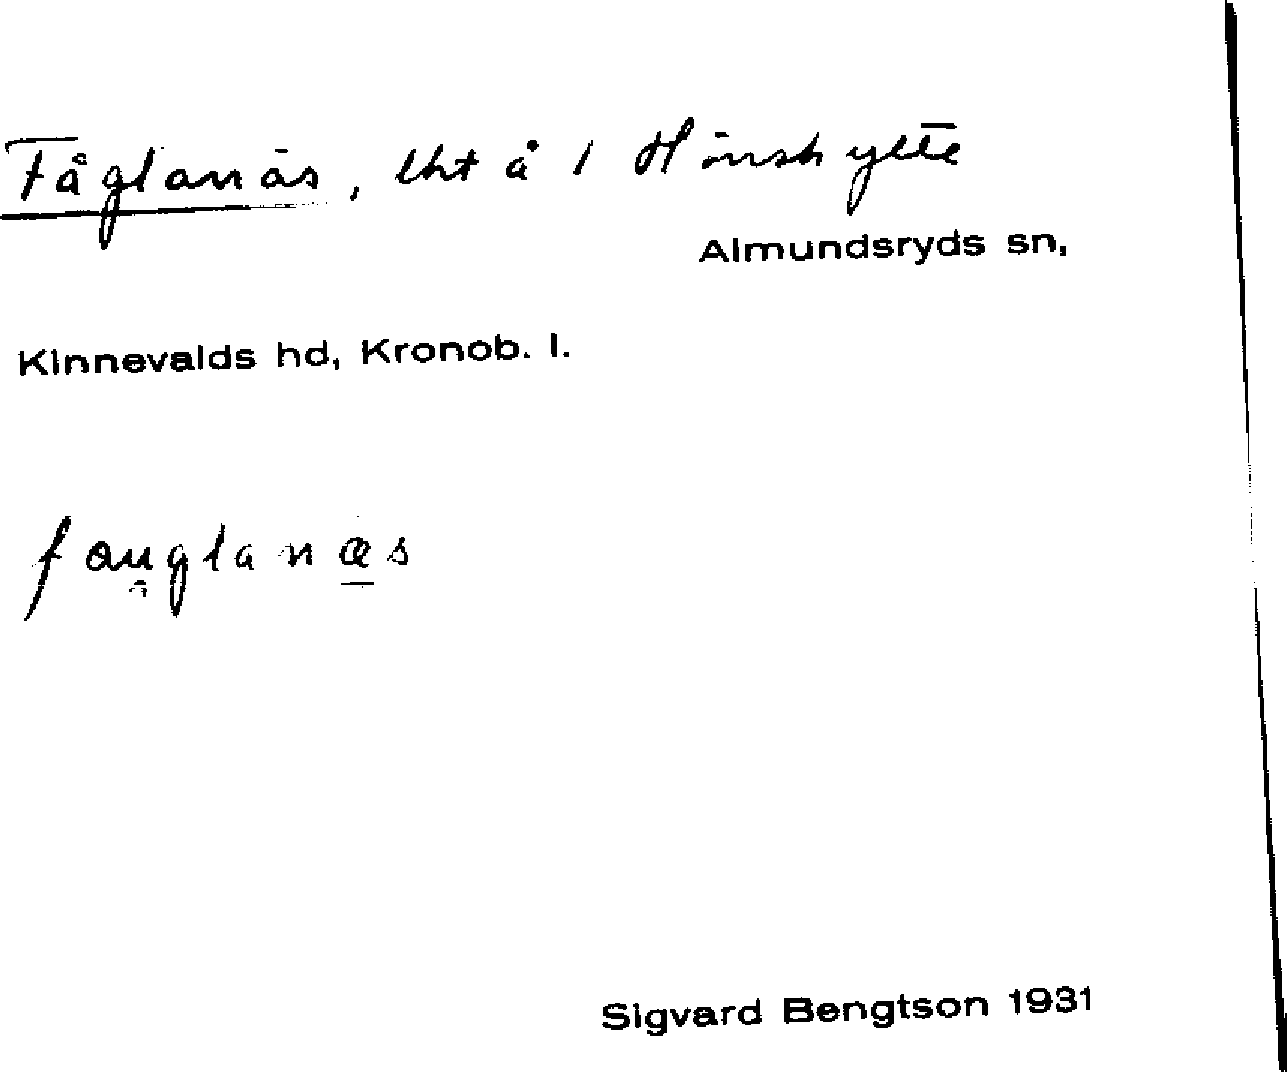 Fåglanäs, lht å 1 Hönshylte
Almundsryds sn,
Kinnevalds hd, Kronob. l.
fauglanæs
Sigvard Bengtson 1931